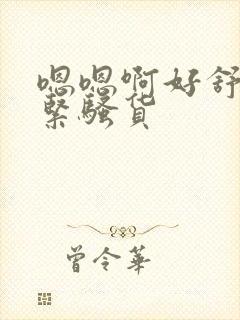 嗯嗯啊好舒
紧骚货
曾令华